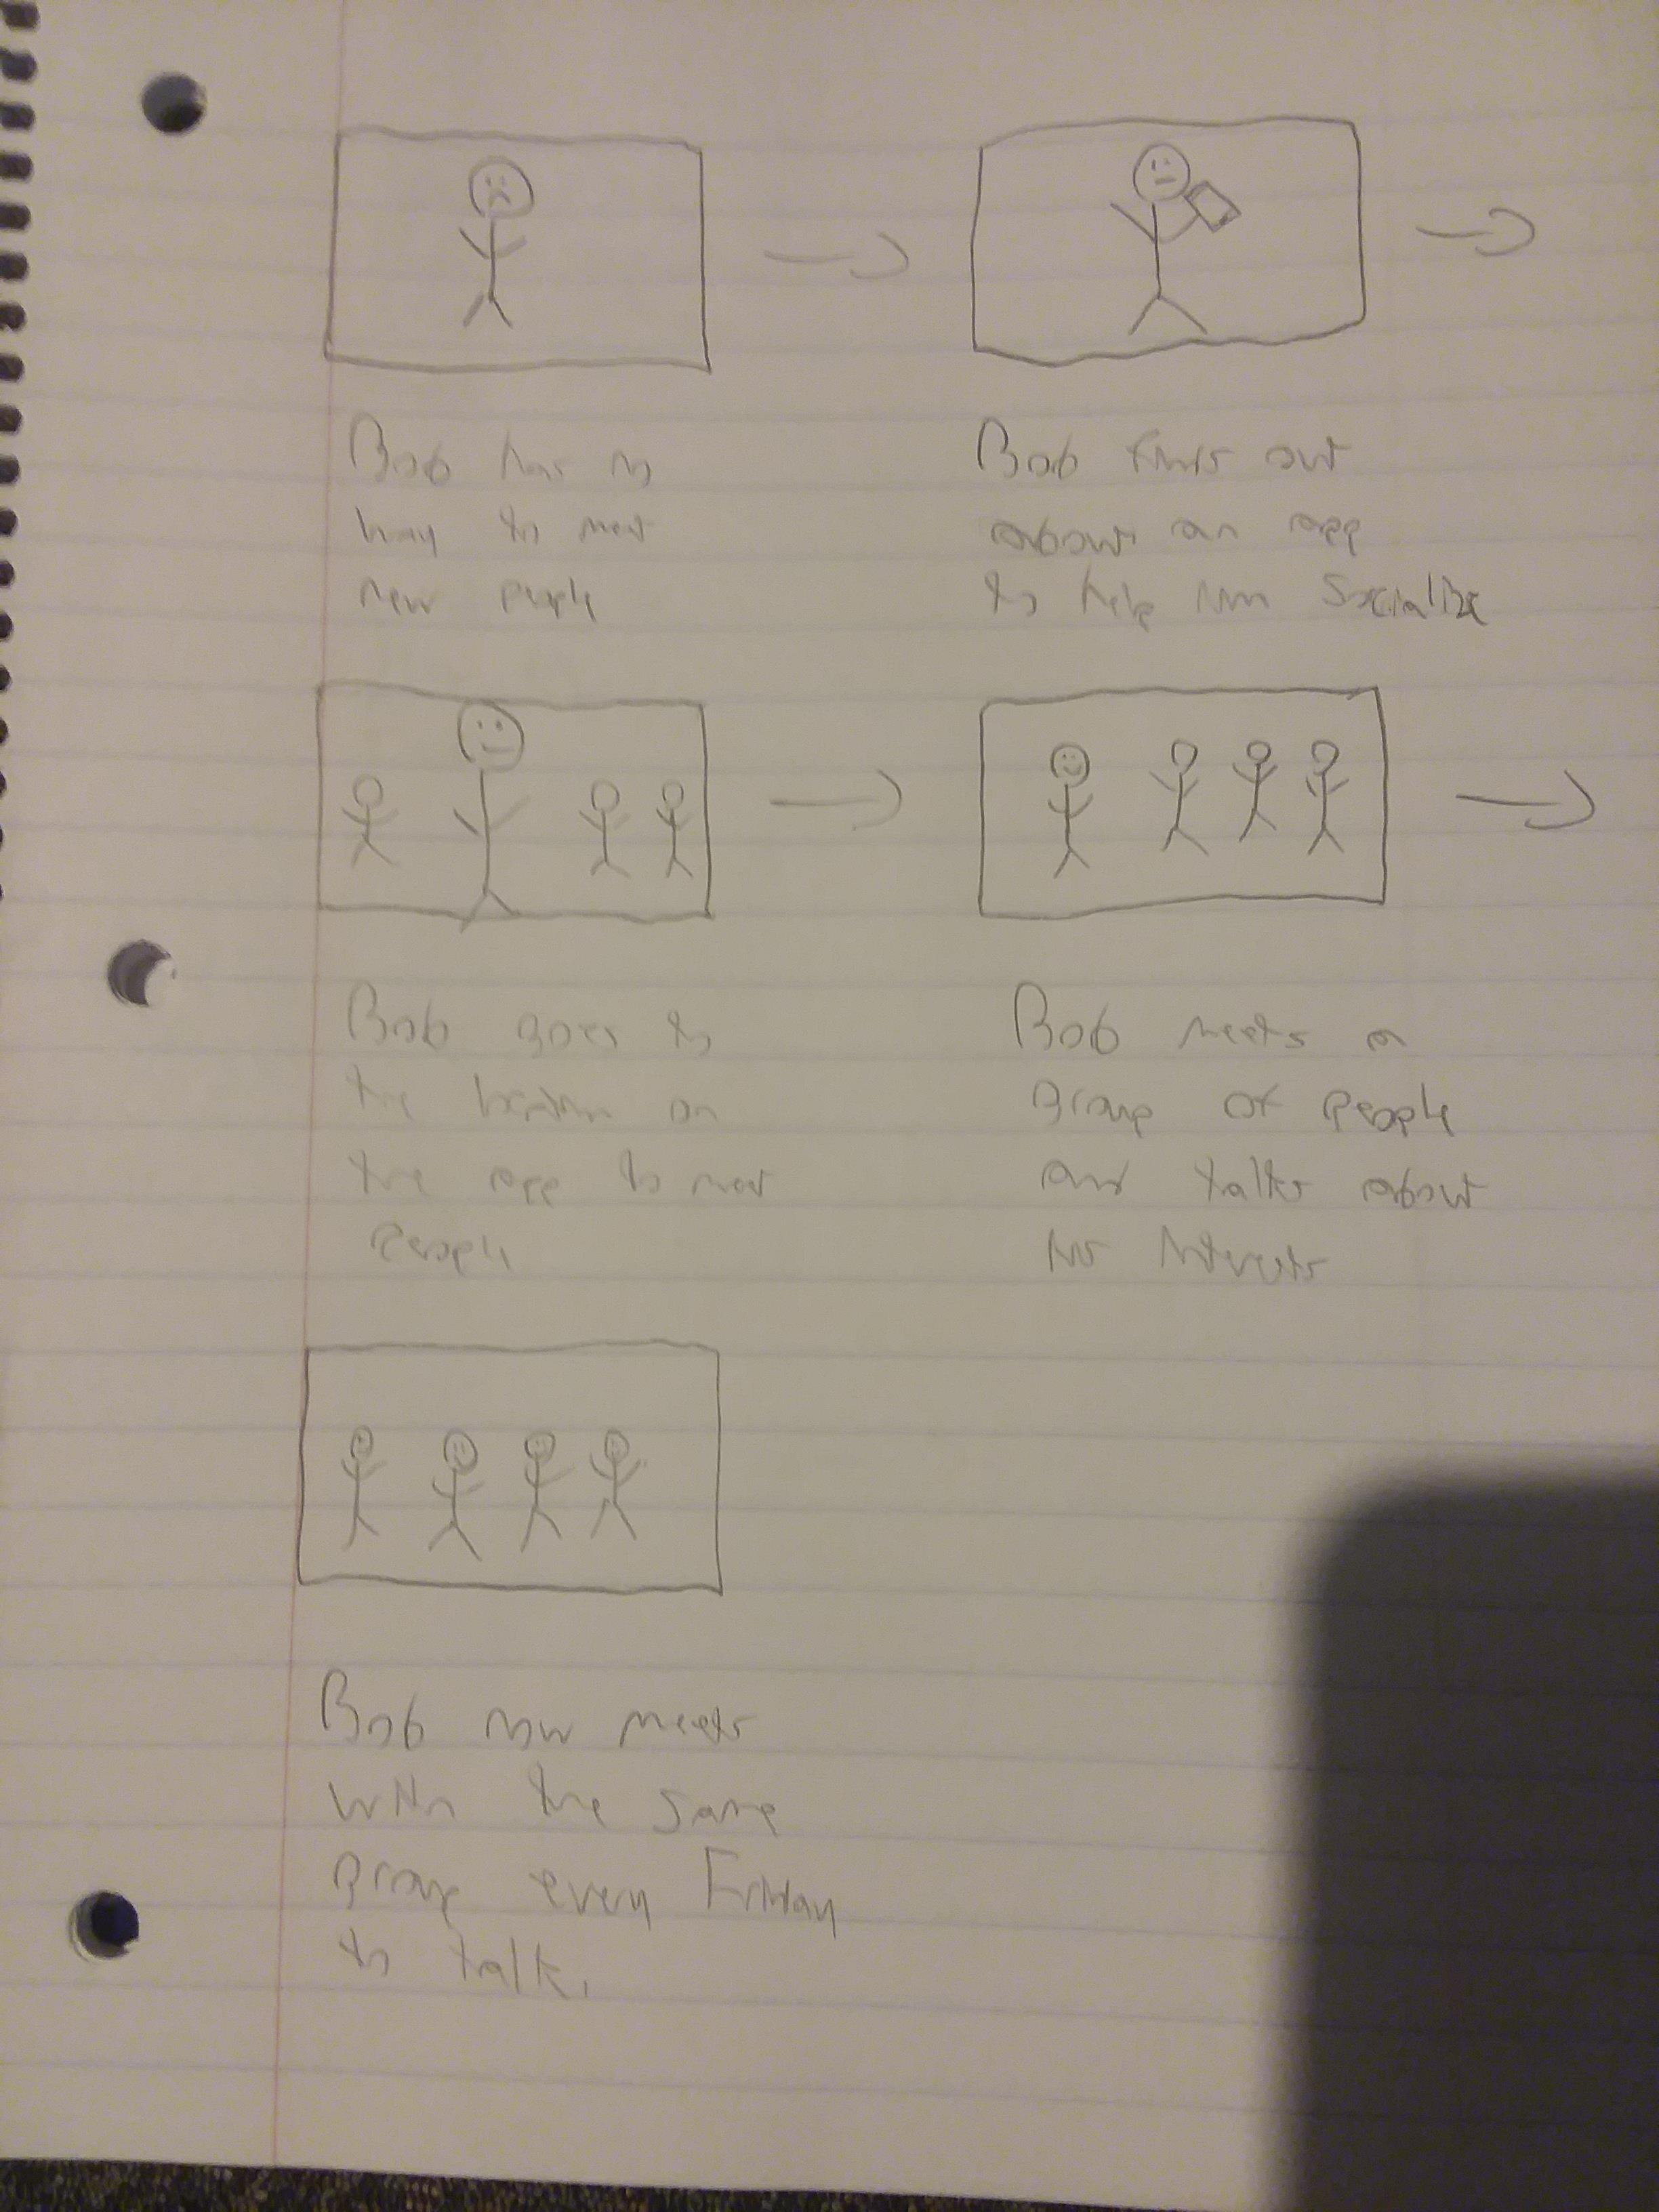 Bob has no
way to meet
new people
Bob finds out
about an app
to help him socialize
Bob goes to
the location on
the app to meet
people
Bob meets a
group of people
and talks about
his interests
Bob now meets
with the same
group every Friday
to talk.